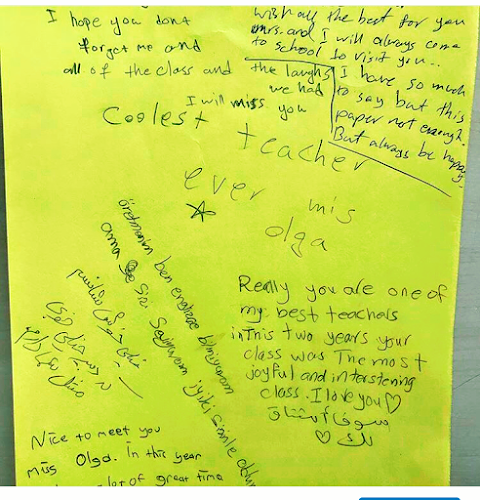 I hope you dont
forget me and
all of the class and the laughs
we had
I will miss you
wish all the best for you
mrs. and I will always come
to school to visit you...
I have so much
to say but this
paper not enough.
But always be happy.
Coolest
teacher
ever
mis
olga
ben
ama sizi Seviyorum iyiki
Really you are one of
my best teachers
in This two years your
class was The most
joyful and interstening
class. I love you ♡
سوف أشتاق
لك ♡
Nice to meet you
miss Olga. In this year
lot of great time